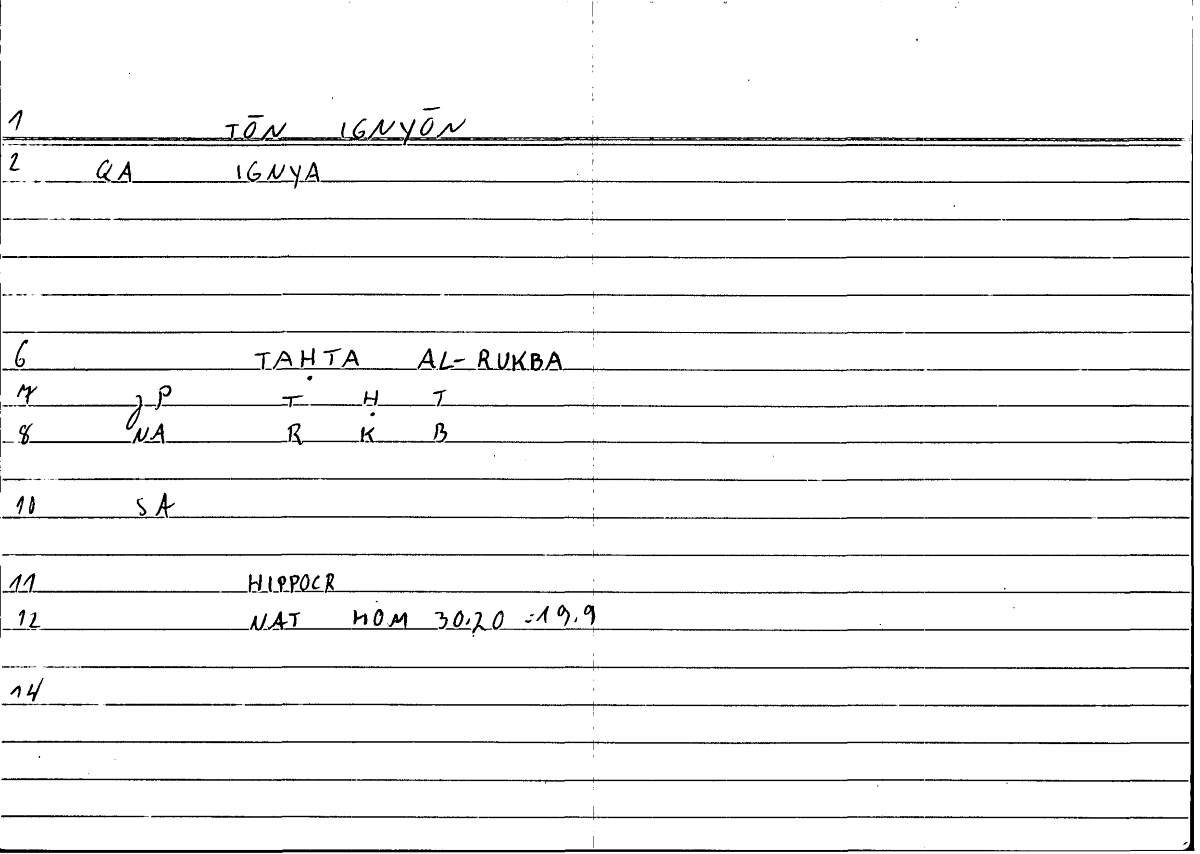 1 TŌN IGNYŌN
2 QA IGNYA
6 TAḤTA AL-RUKBA
7 JP T Ḥ T
8 NA R K B
10 SA
11 HIPPOCR
12 NAT HOM 30.20 =19.9
14